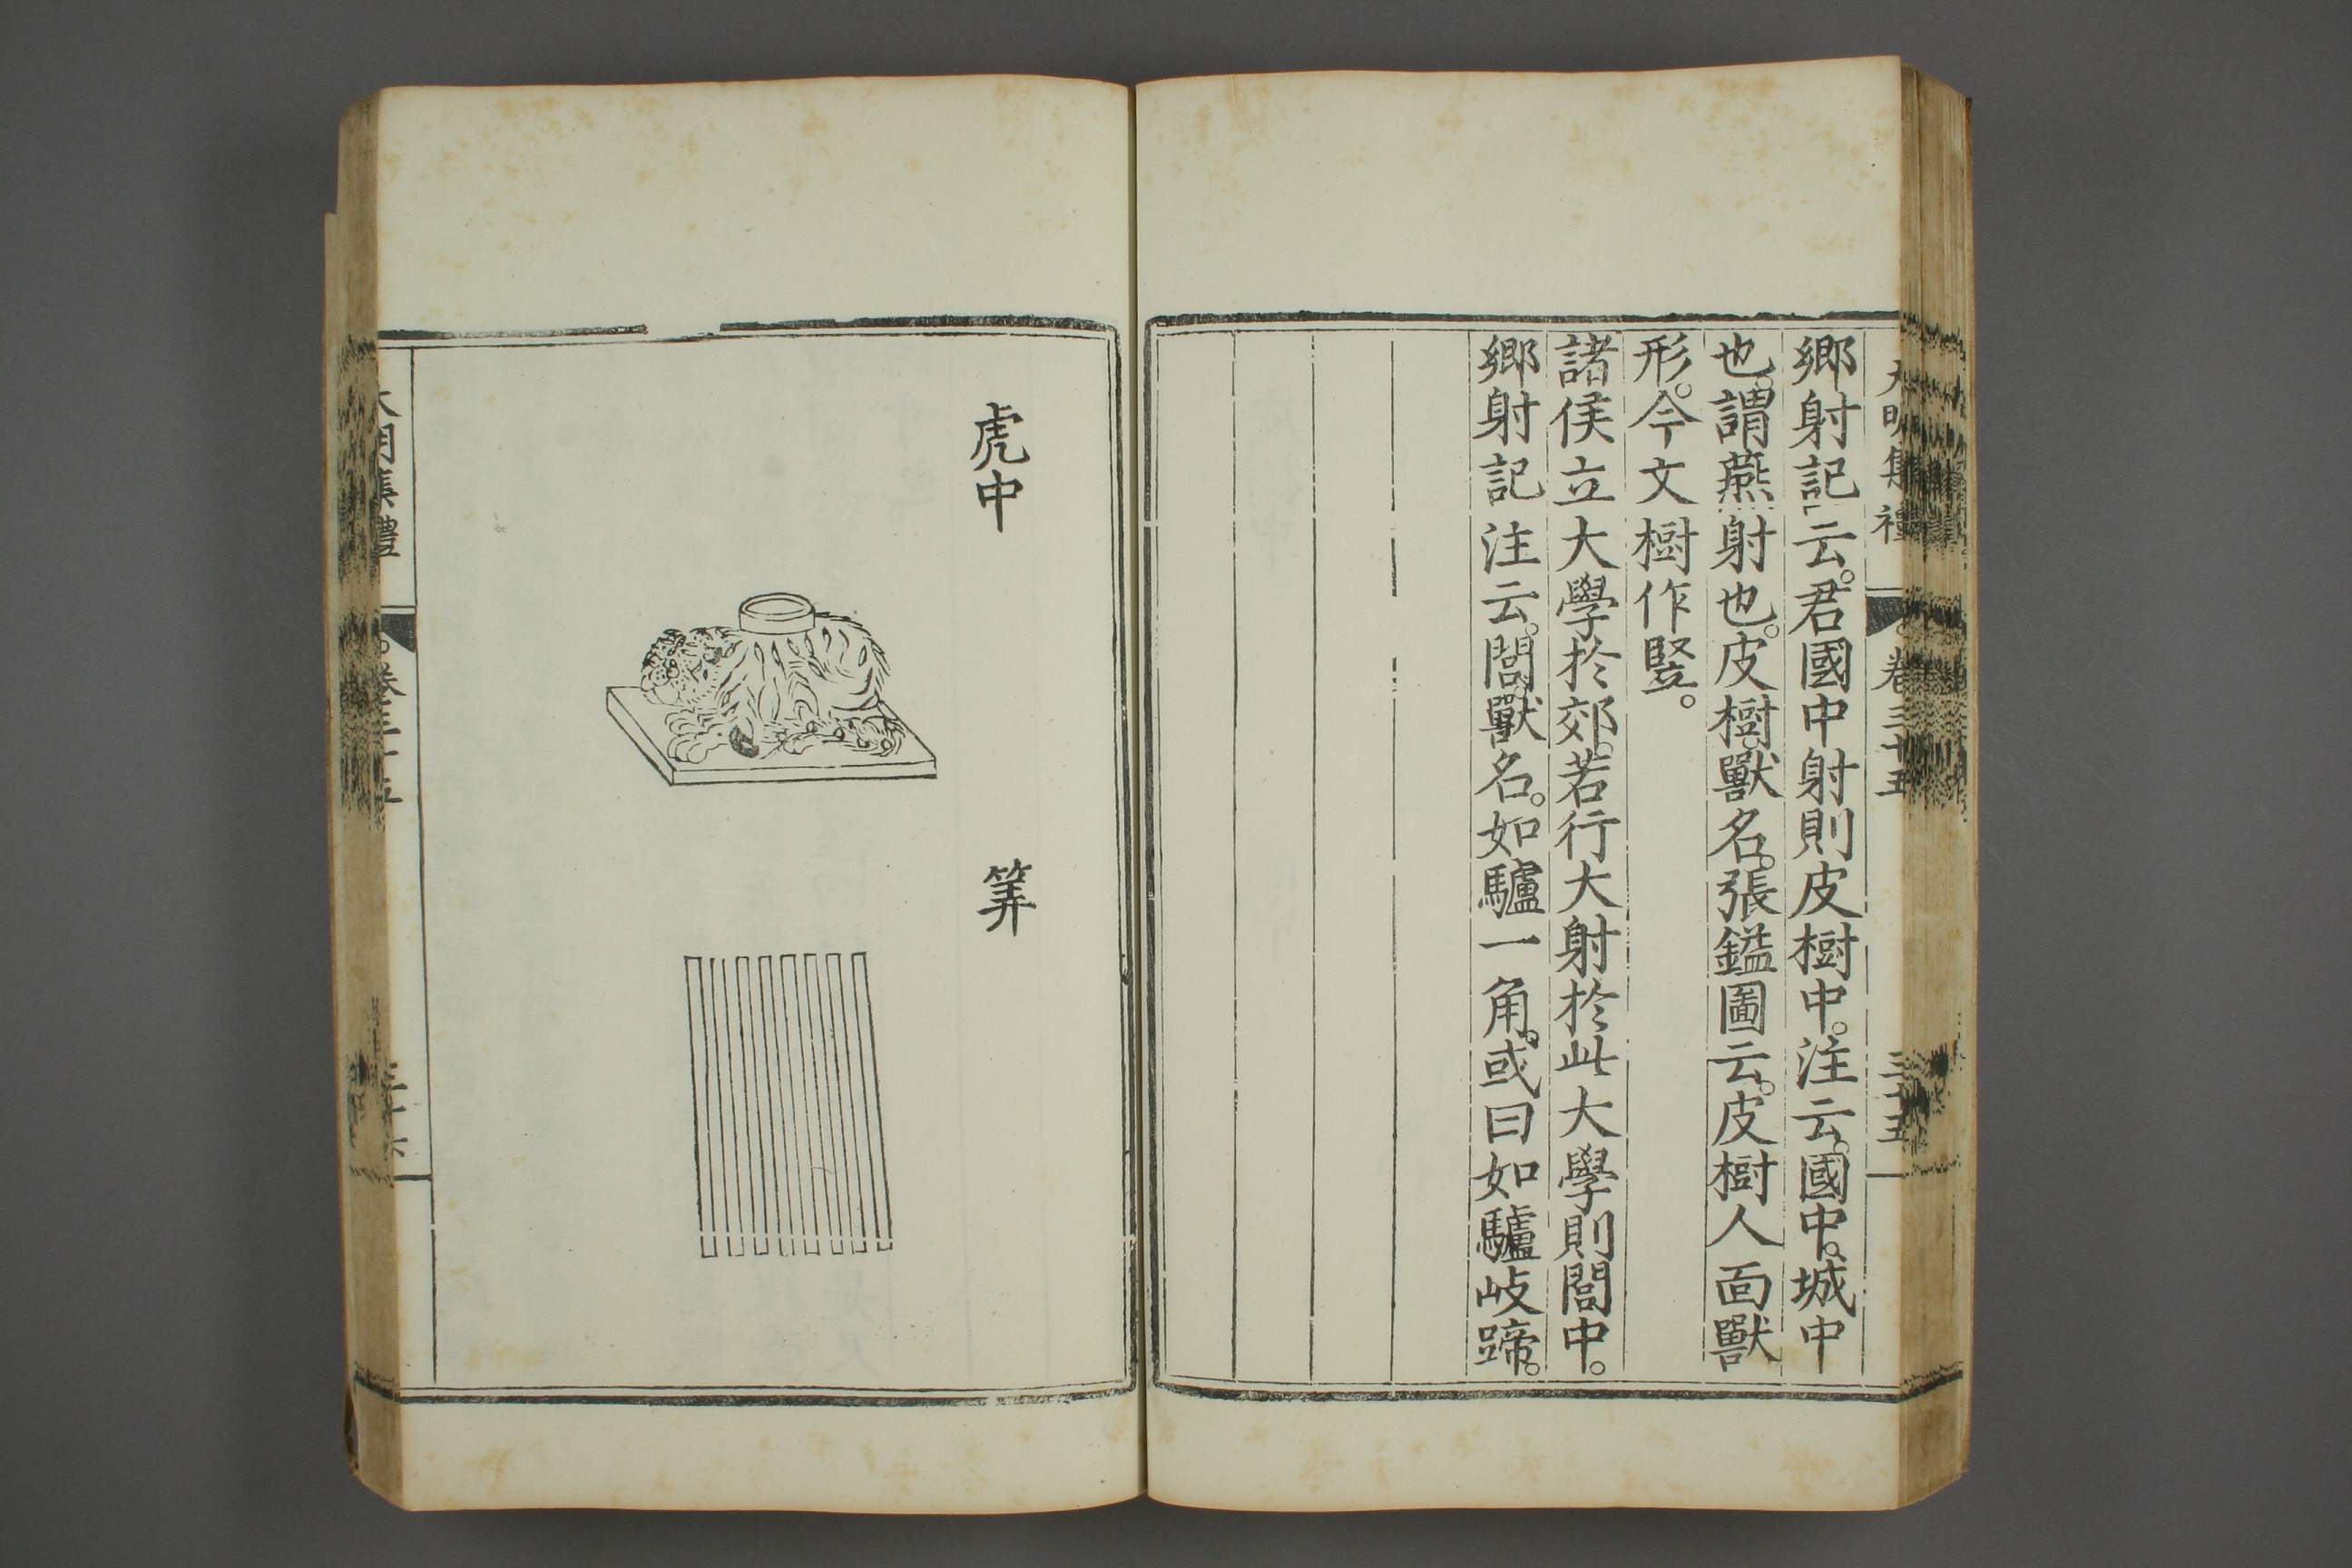 大明集禮 卷三十五 三十五
鄉射記云。君國中射則皮樹中。注云。國中。城中
也。謂燕射也。皮樹。獸名。張鎰圖云。皮樹人面獸
形。今文樹作豎。
諸侯立大學於郊。若行大射於此大學則閭中。
鄉射記注云。閭。獸名。如驢一角。或曰如驢岐蹄。
虎中
筭
大明集禮 卷三十五 三十六